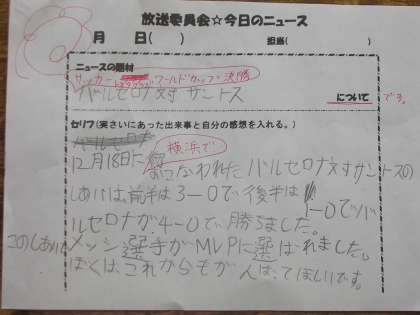 放送委員会☆今日のニュース
月 日( ) 担当( )
ニュースの題材
サッカー ワールドカップ決勝
バルセロナ対サントス について です。
セリフ(実さいにあった出来事と自分の感想を入れる。)
バルセロナ
横浜で
12月18日に おこなわれたバルセロナ対サントスの
しあいは、前半は3-0で後半は1-0でバ
ルセロナが4-0で勝ちました。
このしあいはメッシ選手がMVPに選ばれました。
ぼくは、これからもがんばってほしいです。